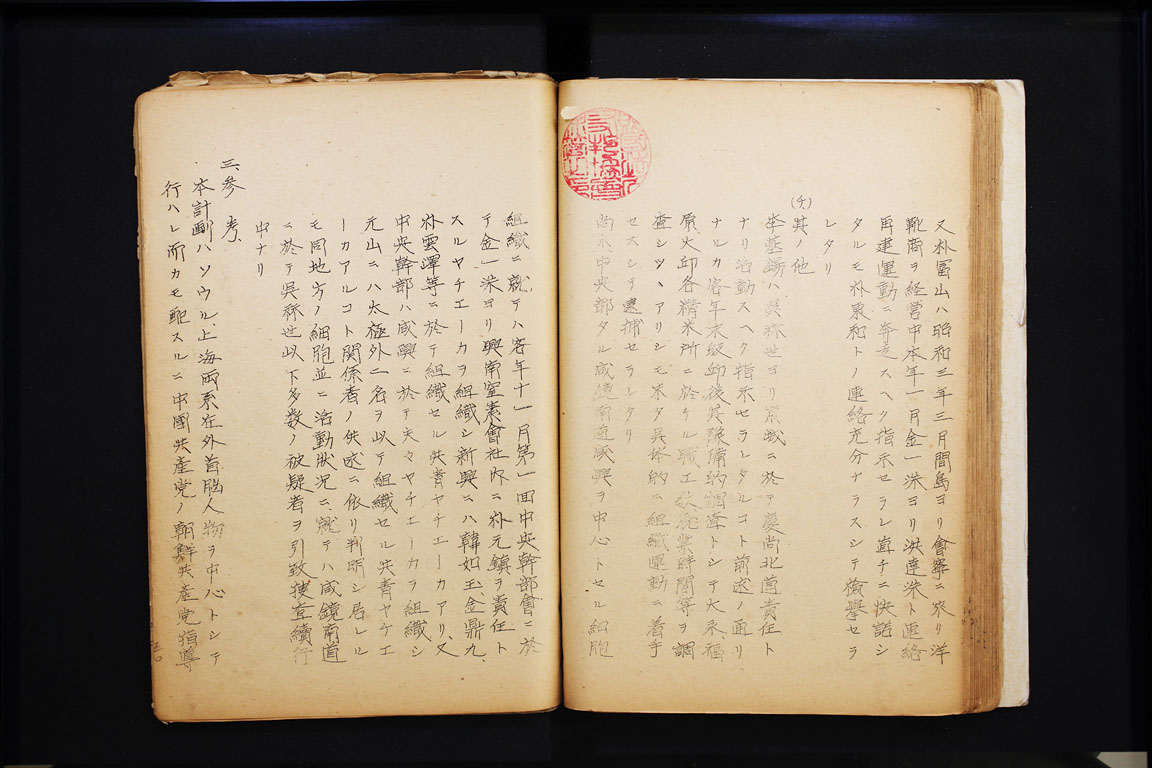 又朴冨山ハ昭和三年三月間島ヨリ會寧ニ來リ洋
靴商ヲ経営中本年一月金一洙ヨリ洪達洙ト連絡
再建運動ニ奔走スヘク指示セラレ直チニ快諾シ
タルモ朴東和トノ連絡充分ナラスシテ檢擧セラ
レタリ
(チ)其ノ他
李基錫ハ呉祘世ヨリ京城ニ於テ慶尚北道責任ト
ナリ活動スヘク指示セラレタルコト前述ノ通リ
ナルカ客年末皈邱後其豫備的調査トシテ大邱、福
原大邱各精米所ニ於ケル職工数就業時間等ヲ調
査シツヽアリシモ未タ具体的ニ組織運動ニ着手
セスシテ逮捕セラレタリ
尚ホ中央部タル咸鏡南道咸興ヲ中心トセル細胞
組織ニ就テハ客年十一月第一回中央幹部會ニ於
テ金一洙ヨリ興南窒素會社内ニ朴元鎮ヲ責任ト
スルヤチエーカヲ組織シ新興ニハ韓如玉、金鼎九、
朴雲澤等ニ於テ組織セル共青ヤチエーカアリ、又
中央幹部ハ咸興ニ於テ夫々ヤチエーカヲ組織シ
元山ニハ太極外二名ヲ以テ組織セル共青ヤチエ
ーカアルコト関係者ノ供述ニ依リ判明シ居ルル
モ同地方ノ細胞並ニ活動狀況ニ就テハ咸鏡南道
ニ於テ呉祘世以下多数ノ被疑者ヲ引致捜査續行
中ナリ
三、參考、
本計画ハソウル、上海両系在外首脳人物ヲ中心トシテ
行ハレ而カモ配スルニ中國共産党ノ朝鮮共産党指導